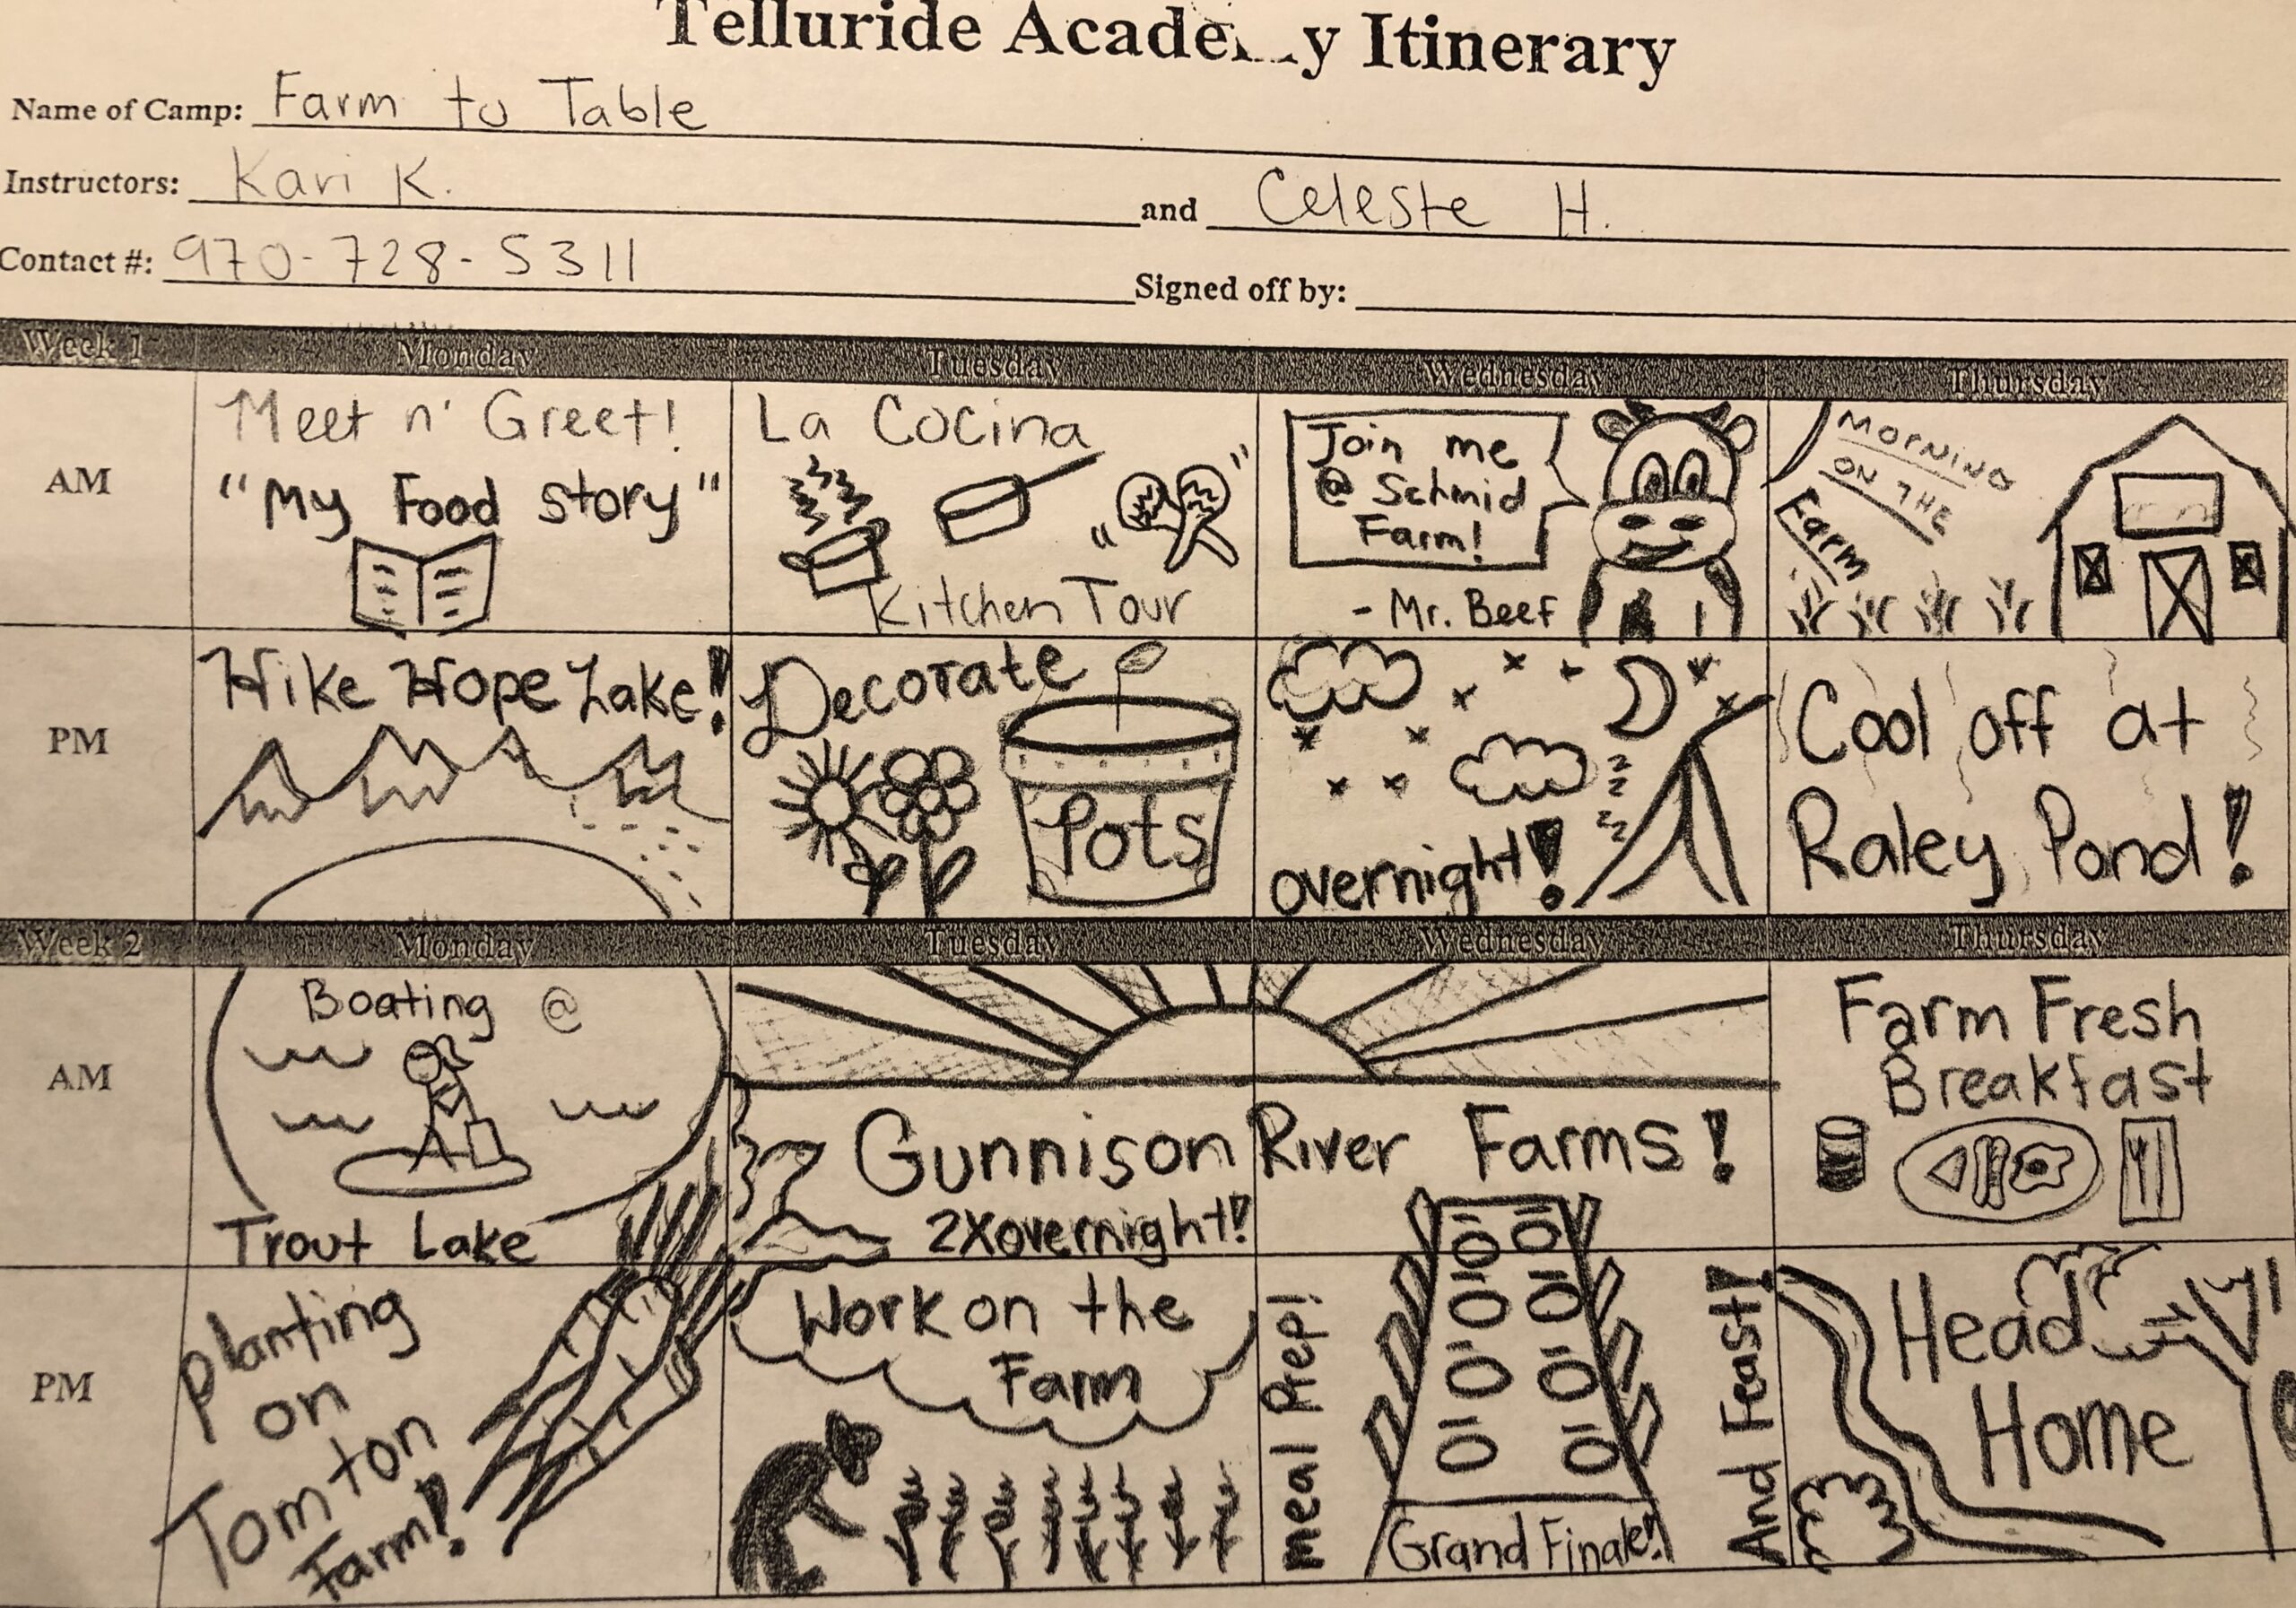 Telluride Academy Itinerary
Name of Camp: Farm to Table
Instructors: Kari K. and Celeste H.
Contact #: 970-728-5311 Signed off by:
Week 1 Monday Tuesday Wednesday Thursday
AM
Meet n' Greet!
"My Food Story"
La Cocina
Kitchen Tour
Join me
@ Schmid
Farm!
- Mr. Beef
MORNING
ON THE
Farm
PM
Hike Hope Lake!
Decorate
Pots
overnight!
Cool off at
Raley Pond!
Week 2 Monday Tuesday Wednesday Thursday
AM
Boating @
Trout Lake
Gunnison River Farms!
2X overnight!
Farm Fresh
Breakfast
PM
Planting
on
Tomten
Farm!
Work on the
Farm
meal Prep!
Grand Finale!
And Feast!
Head
Home